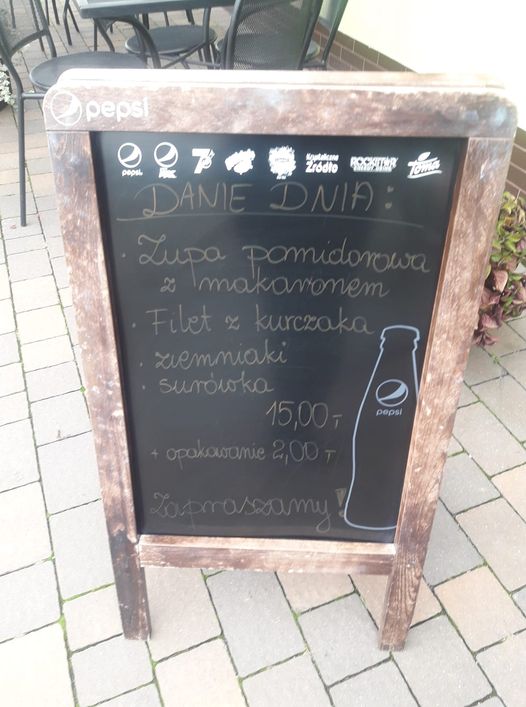 pepsi
pepsi. MAX 7UP Krystaliczne Źródło ROCKSTAR ENERGY DRINK Toma
DANIE DNIA:
· Zupa pomidorowa
z makaronem
· Filet z kurczaka
· ziemniaki
· surówka
15,00,-
+ opakowanie 2,00,-
Zapraszamy!
pepsi